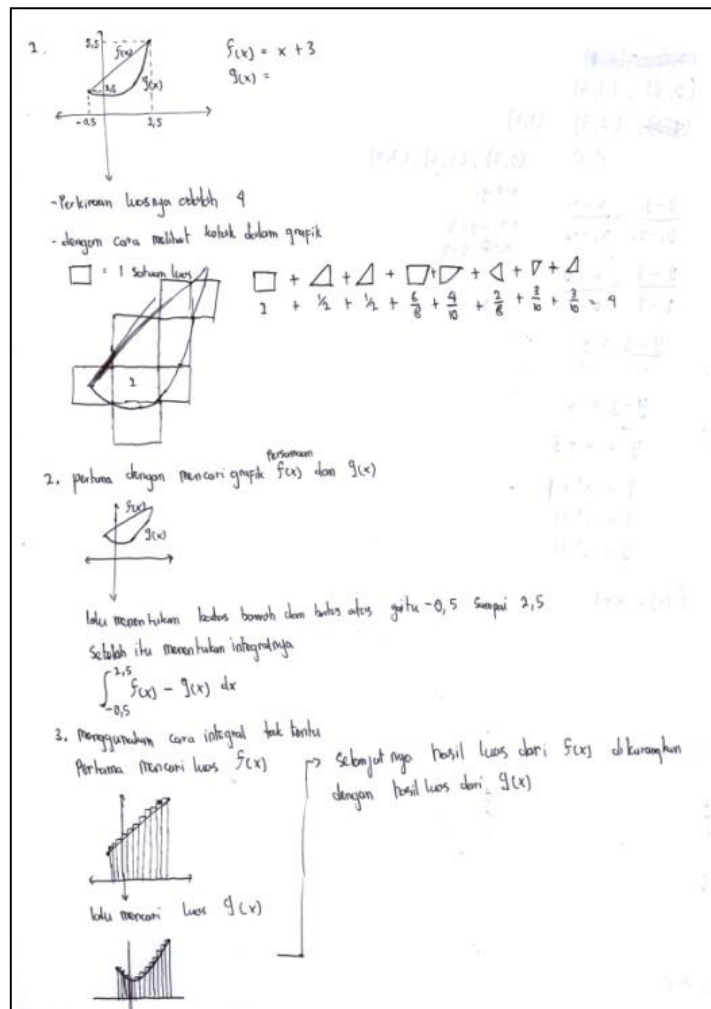 1.
5,5
f(x)
g(x)
2,5
-0,5
2,5
f(x) = x + 3
g(x) =
- Perkiraan luasnya adalah 4
- dengan cara melihat kotak dalam grafik
= 1 satuan luas
+ + + + + + +
1 + 1/2 + 1/2 + 6/8 + 4/10 + 2/8 + 3/10 + 3/10 = 4
1
2. pertama dengan mencari grafik persamaan f(x) dan g(x)
f(x)
g(x)
lalu menentukan batas bawah dan batas atas yaitu -0,5 sampai 2,5
Setelah itu menentukan integralnya
∫ -0,5 2,5 f(x) - g(x) dx
3. menggunakan cara integral tak tentu
Pertama mencari luas f(x)
lalu mencari luas g(x)
Selanjutnya hasil luas dari f(x) dikurangkan
dengan hasil luas dari g(x)